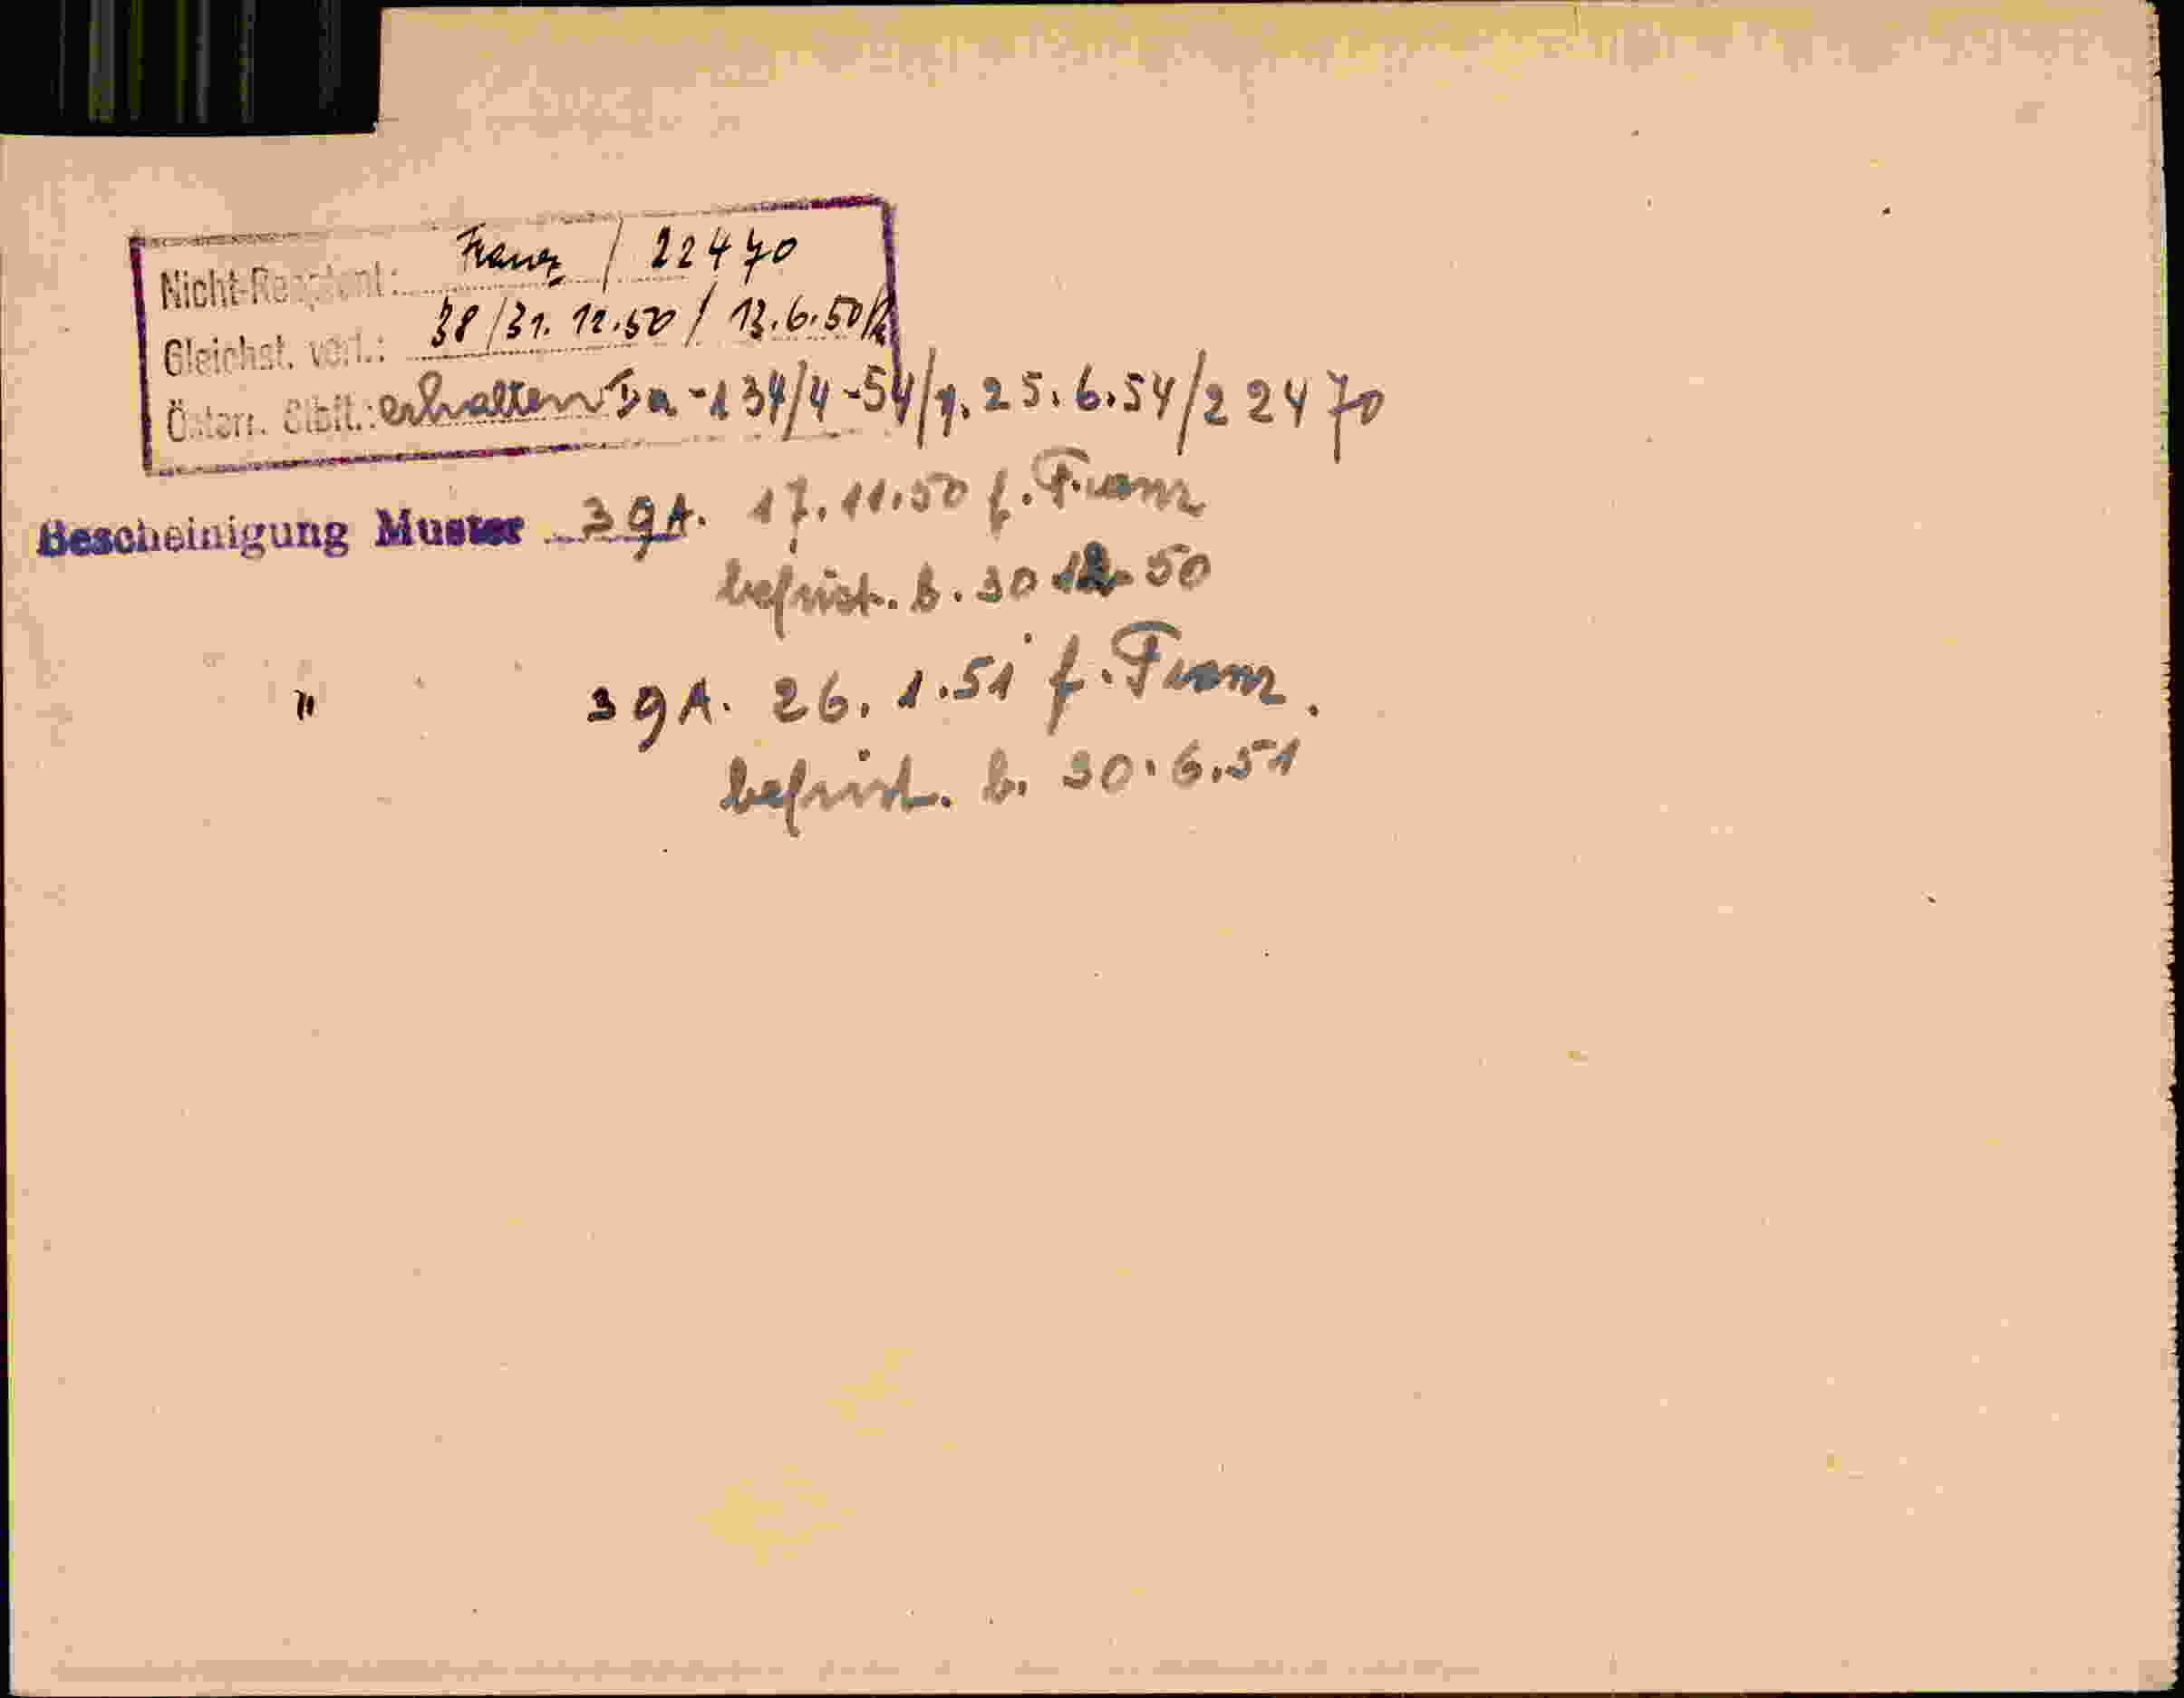 Nicht-Reoptant: Franz / 22470
Gleichst. verl.: 38/31.12.50 / 13.6.50
Österr. Stbft.: erhalten Ia-134/4-54/ 25.6.54/22470
Bescheinigung Muster 3 gA. 17.11.50 f. Franz
befrist. b. 30.12.50
" 3 gA. 26.1.51 f. Franz.
befrist. b. 30.6.51